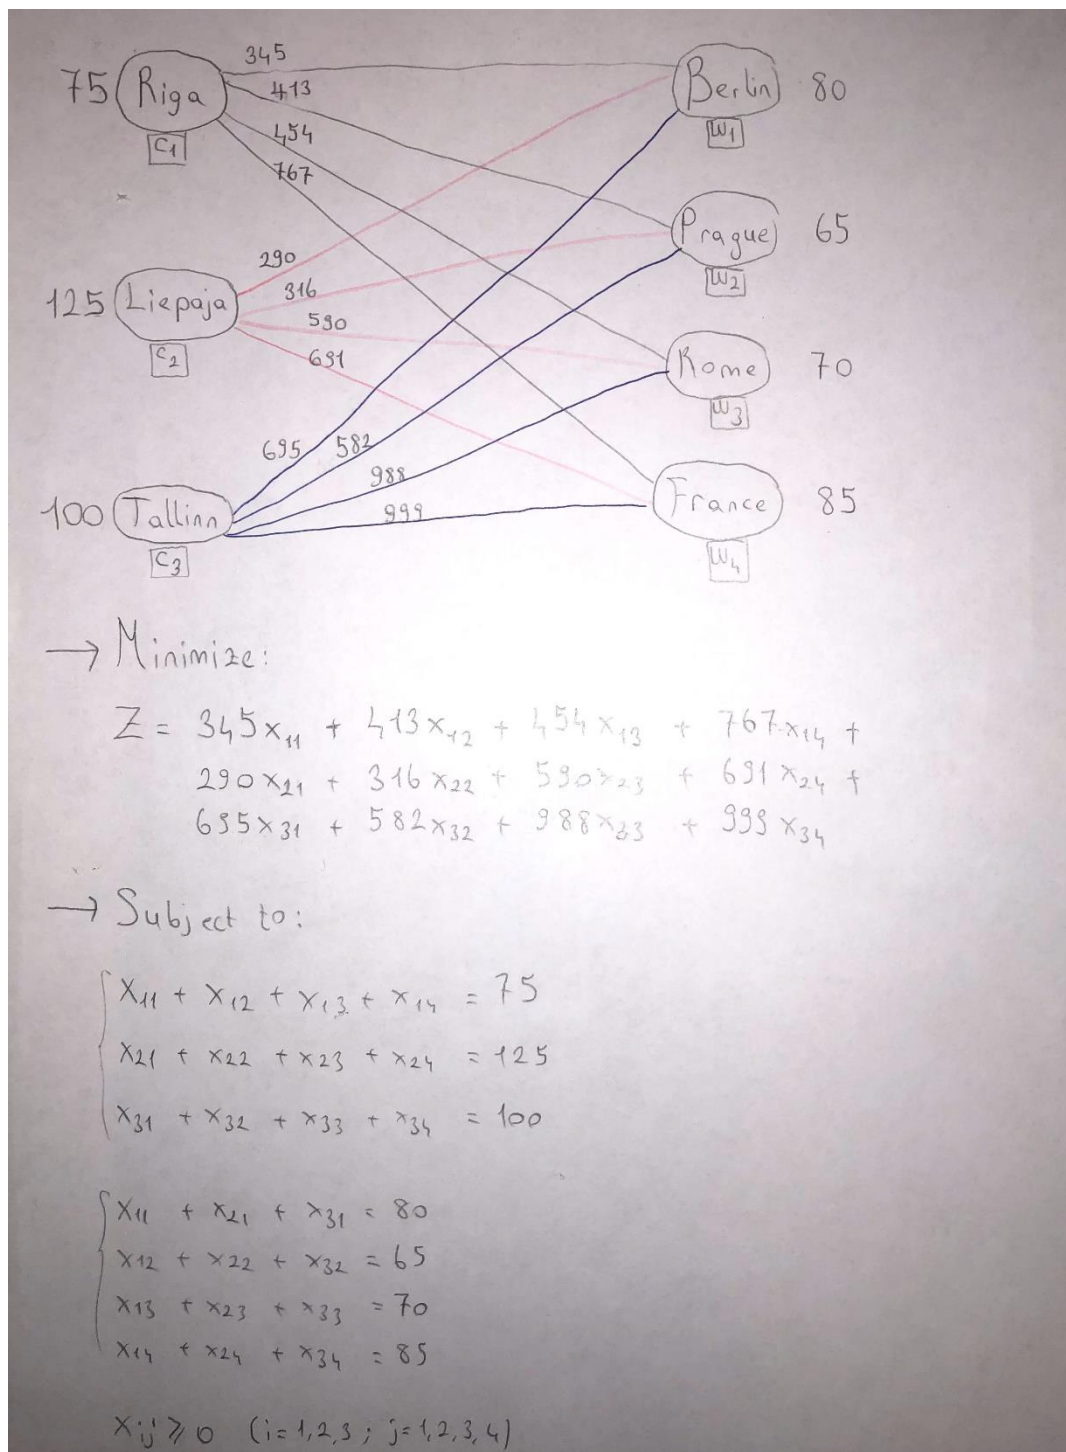 345
75 Riga 413 Berlin 80
C1 454 W1
767
Prague 65
290 W2
125 Liepaja 316
C2 590 Rome 70
691 W3
695 582
988 France 85
100 Tallinn 999 W4
C3
→ Minimize:
Z = 345x11 + 413x12 + 454x13 + 767x14 +
290x21 + 316x22 + 590x23 + 691x24 +
695x31 + 582x32 + 988x33 + 999x34
→ Subject to:
x11 + x12 + x13 + x14 = 75
x21 + x22 + x23 + x24 = 125
x31 + x32 + x33 + x34 = 100
x11 + x21 + x31 = 80
x12 + x22 + x32 = 65
x13 + x23 + x33 = 70
x14 + x24 + x34 = 85
xij ⩾ 0 (i=1,2,3 ; j=1,2,3,4)